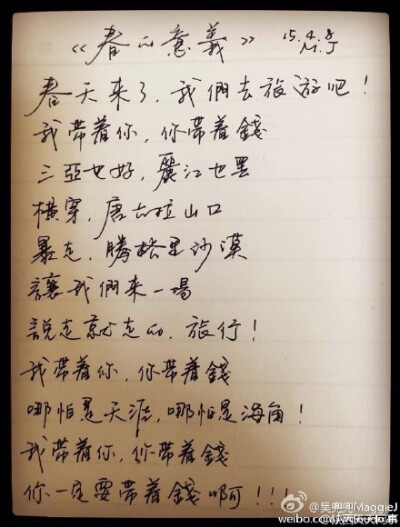 《春的意義》 15.4.8
M.J
春天来了，我們去旅游吧！
我带着你，你带着錢
三亞也好，麗江也罢
横穿，唐古拉山口
暴走，腾格里沙漠
讓我們来一場
說走就走的，旅行！
我带着你，你带着錢
哪怕是天涯，哪怕是海角！
我带着你，你带着錢
你一定要带着錢啊！！！
@吴唧唧MaggieJ
weibo.com/